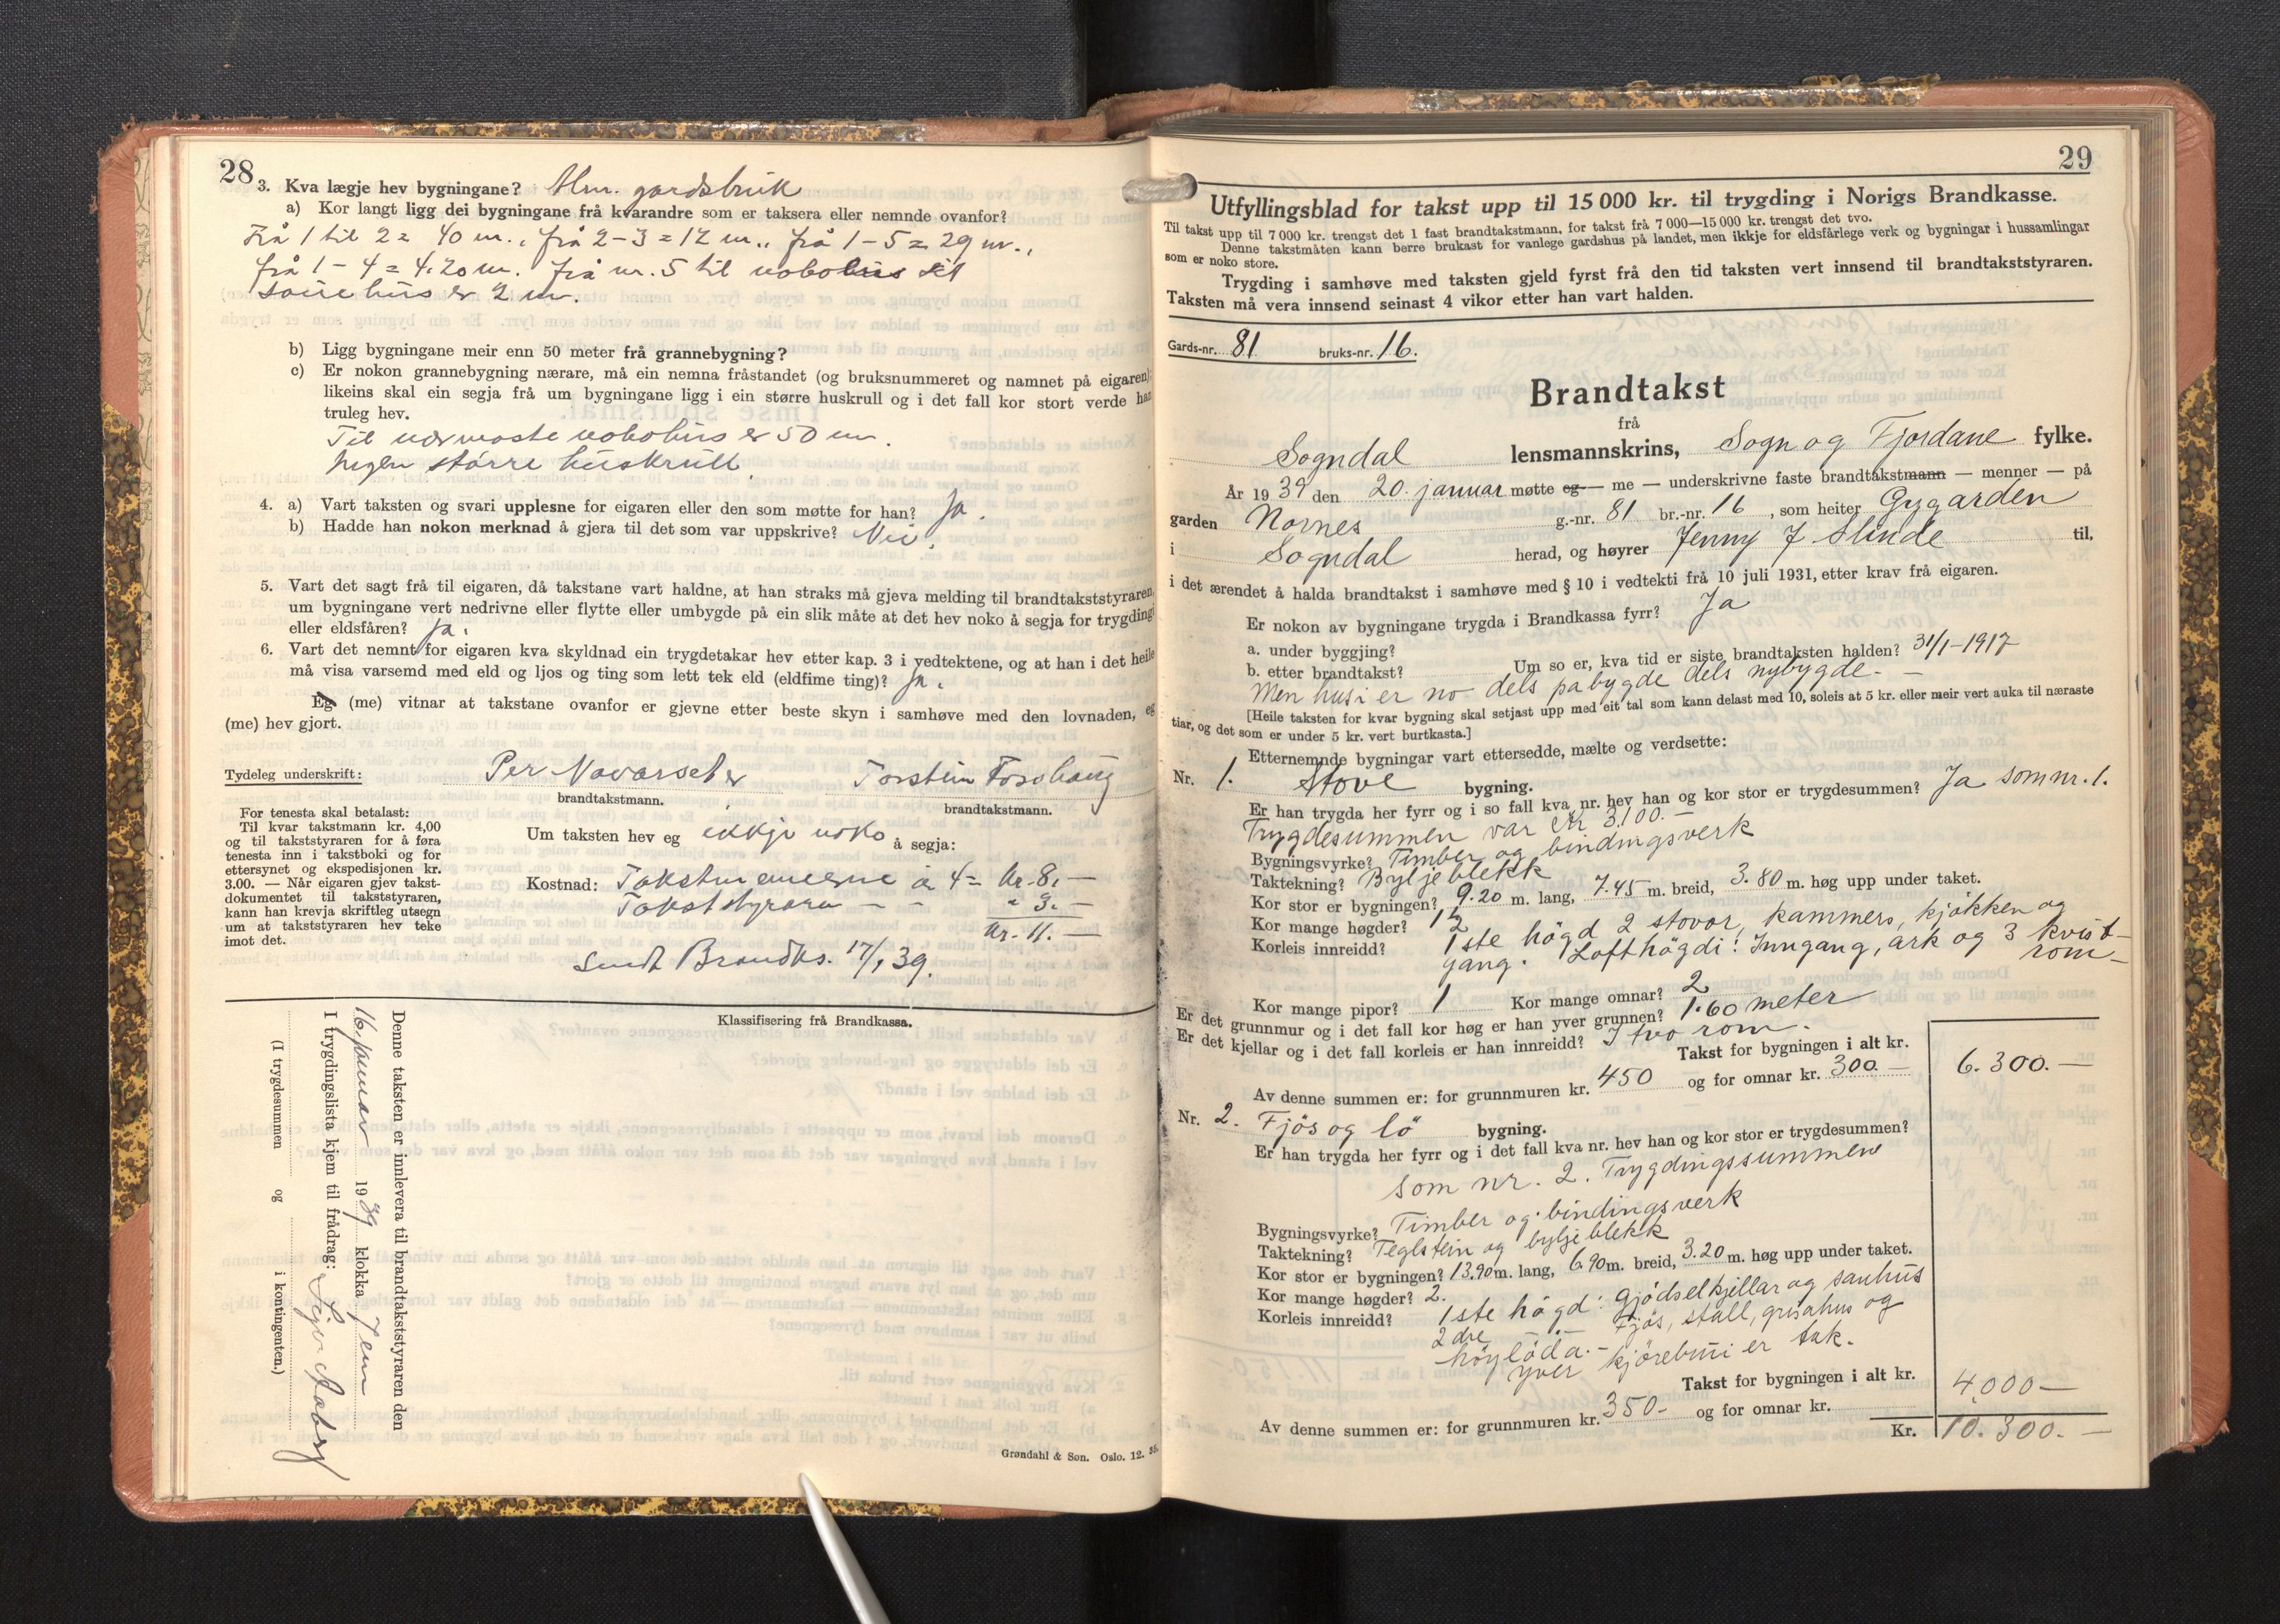 28
3. Kva lægje hev bygningane? Alm. gardsbruk
a) Kor langt ligg dei bygningane frå kvarandre som er taksera eller nemnde ovanfor?
Frå 1 til 2 = 40 m., frå 2-3 = 12 m., frå 1-5 = 29 m.,
frå 1-4 = 4.20 m. frå nr. 5 til nabohus sit
sauehus er 2 m.
b) Ligg bygningane meir enn 50 meter frå grannebygning?
c) Er nokon grannebygning nærare, må ein nemna fråstandet (og bruksnummeret og namnet på eigaren);
likeins skal ein segja frå um bygningane ligg i ein større huskrull og i det fall kor stort verde han
truleg hev.
Til nærmaste nabohus er 50 m.
Ingen större huskrull.
4. a) Vart taksten og svari upplesne for eigaren eller den som møtte for han? Ja.
b) Hadde han nokon merknad å gjera til det som var uppskrive? Nei.
5. Vart det sagt frå til eigaren, då takstane vart haldne, at han straks må gjeva melding til brandtakststyraren,
um bygningane vert nedrivne eller flytte eller umbygde på ein slik måte at det hev noko å segja for trygdingi
eller eldsfåren? Ja.
6. Vart det nemnt for eigaren kva skyldnad ein trygdetakar hev etter kap. 3 i vedtektene, og at han i det heile
må visa varsemd med eld og ljos og ting som lett tek eld (eldfime ting)? Ja.
Eg (me) vitnar at takstane ovanfor er gjevne etter beste skyn i samhøve med den lovnaden, eg
(me) hev gjort.
Tydeleg underskrift: Per Navarseter Torstein Foshaug
brandtakstmann. brandtakstmann.
For tenesta skal betalast:
Til kvar takstmann kr. 4,00
og til takststyraren for å føra
tenesta inn i takstboki og for
ettersynet og ekspedisjonen kr.
3.00. — Når eigaren gjev takst-
dokumentet til takststyraren,
kann han krevja skriftleg utsegn
um at takststyraren hev teke
imot det.
Um taksten hev eg ikkje noko å segja:
Kostnad: Takstmennerne à 4= kr. 8,—
Takststyraren — — " 3.—
kr. 11.—
Sendt Brandks. 17/1 39.
Klassifisering frå Brandkassa.
Denne taksten er innlevera til brandtakststyraren den
16. januar 1939 klokka
I trygdingslista kjem til frådrag:
(I trygdesummen og i kontingenten.)
Grøndahl & Søn. Oslo. 12. 35.
29
Utfyllingsblad for takst upp til 15 000 kr. til trygding i Norigs Brandkasse.
Til takst upp til 7 000 kr. trengst det 1 fast brandtakstmann, for takst frå 7 000—15 000 kr. trengst det tvo.
Denne takstmåten kann berre brukast for vanlege gardshus på landet, men ikkje for eldsfårlege verk og bygningar i hussamlingar
som er noko store.
Trygding i samhøve med taksten gjeld fyrst frå den tid taksten vert innsend til brandtakststyraren.
Taksten må vera innsend seinast 4 vikor etter han vart halden.
Gards-nr. 81 bruks-nr. 16.
Brandtakst
frå
Sogndal lensmannskrins, Sogn og Fjordane fylke.
År 1939 den 20. januar møtte eg — me — underskrivne faste brandtakstmann — menner — på
garden Nornes g.-nr. 81 br.-nr. 16, som heiter Gygarden
i Sogndal herad, og høyrer Jenny J Slinde til,
i det ærendet å halda brandtakst i samhøve med § 10 i vedtekti frå 10 juli 1931, etter krav frå eigaren.
Er nokon av bygningane trygda i Brandkassa fyrr? Ja
a. under byggjing?
b. etter brandtakst? Um so er, kva tid er siste brandtaksten halden? 31/1-1917
Men husi er no dels påbygde dels nybygde.-
[Heile taksten for kvar bygning skal setjast upp med eit tal som kann delast med 10, soleis at 5 kr. eller meir vert auka til næraste
tiar, og det som er under 5 kr. vert burtkasta.]
Etternemnde bygningar vart ettersedde, mælte og verdsette:
Nr. 1. Stove bygning.
Er han trygda her fyrr og i so fall kva nr. hev han og kor stor er trygdesummen? Ja som nr. 1.
Trygdesummen var kr 3.100.-
Bygningsvyrke? Timber og bindingsverk
Taktekning? Bylje blekk
Kor stor er bygningen? 9.20 m. lang, 7.45 m. breid, 3.80 m. høg upp under taket.
Kor mange høgder? 1 1/2
Korleis innreidd? 1ste högd 2 stovor, kammers, kjökken og
gang. Lofthögdi: Inngang, ark og 3 kvist-
rom-
Kor mange pipor? 1 Kor mange omnar? 2
Er det grunnmur og i det fall kor høg er han yver grunnen? 1.60 meter
Er det kjellar og i det fall korleis er han innreidd? I tvo rom.
Takst for bygningen i alt kr. 6.300.—
Av denne summen er: for grunnmuren kr. 450 og for omnar kr. 300.—
Nr. 2. Fjös og lö bygning.
Er han trygda her fyrr og i det fall kva nr. hev han og kor stor er trygdesummen?
som nr. 2. Trygdingssummen
Bygningsvyrke? Timber og bindingsverk
Taktekning? Teglstein og bylje blekk
Kor stor er bygningen? 13,90 m. lang, 6.90 m. breid, 3.20 m. høg upp under taket.
Kor mange høgder? 2.
Korleis innreidd? 1ste högd: gjödselkjellar og sauhus
2dre —"— Fjös, stall, grisahus og
höylöda.-
yver kjörebrui er tak.
Takst for bygningen i alt kr. 4,000—
Av denne summen er: for grunnmuren kr. 350- og for omnar kr.
Kr. 10.300.—